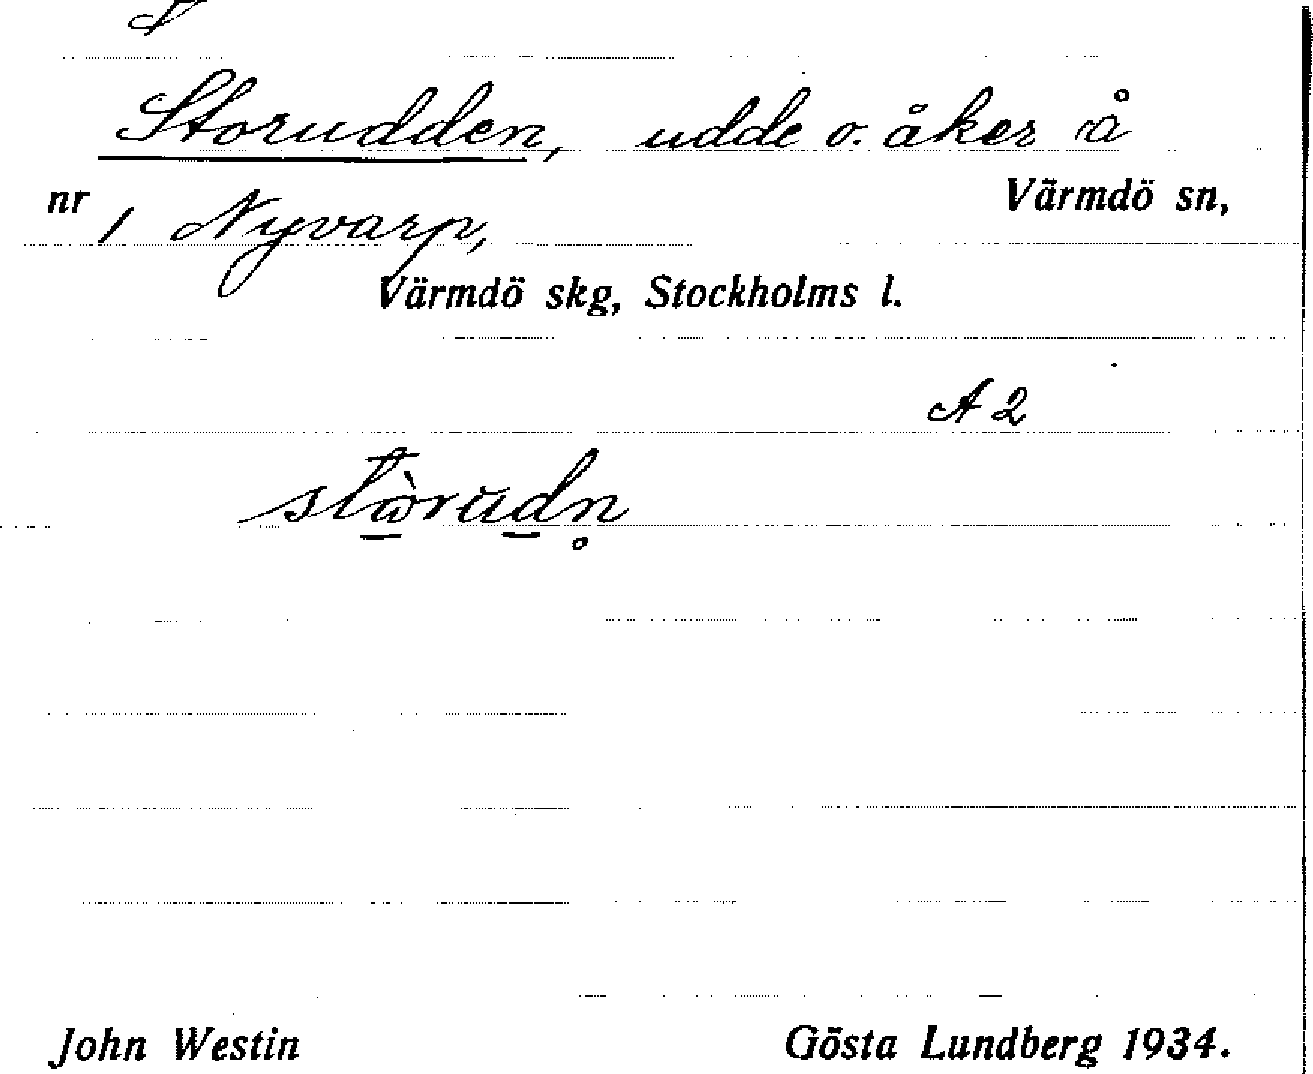 Storudden, udde o. åker å
nr 1 Nyvarp, Värmdö sn,
Värmdö skg, Stockholms l.
A 2
stὼrudn̥
John Westin Gösta Lundberg 1934.